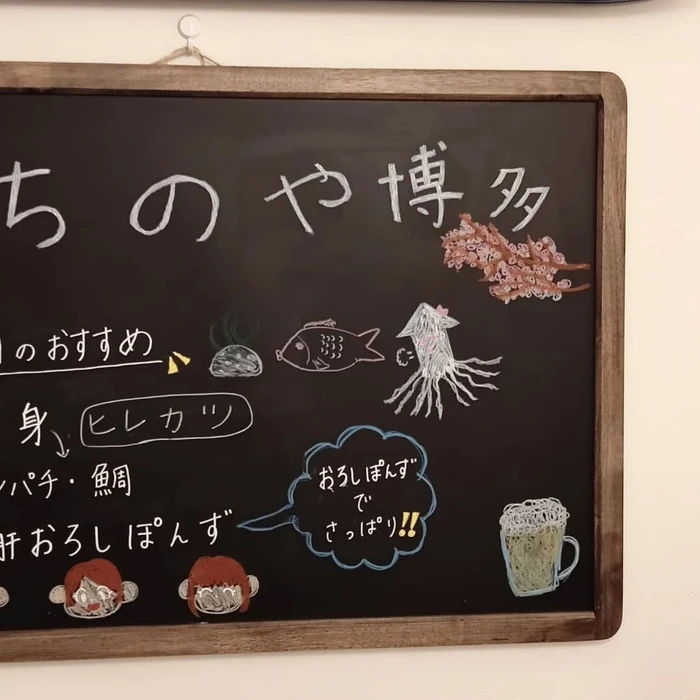 ちのや博多
のおすすめ
身 ヒレカツ
パチ・鯛
肝おろしぽんず
おろしぽんず
で
さっぱり!!